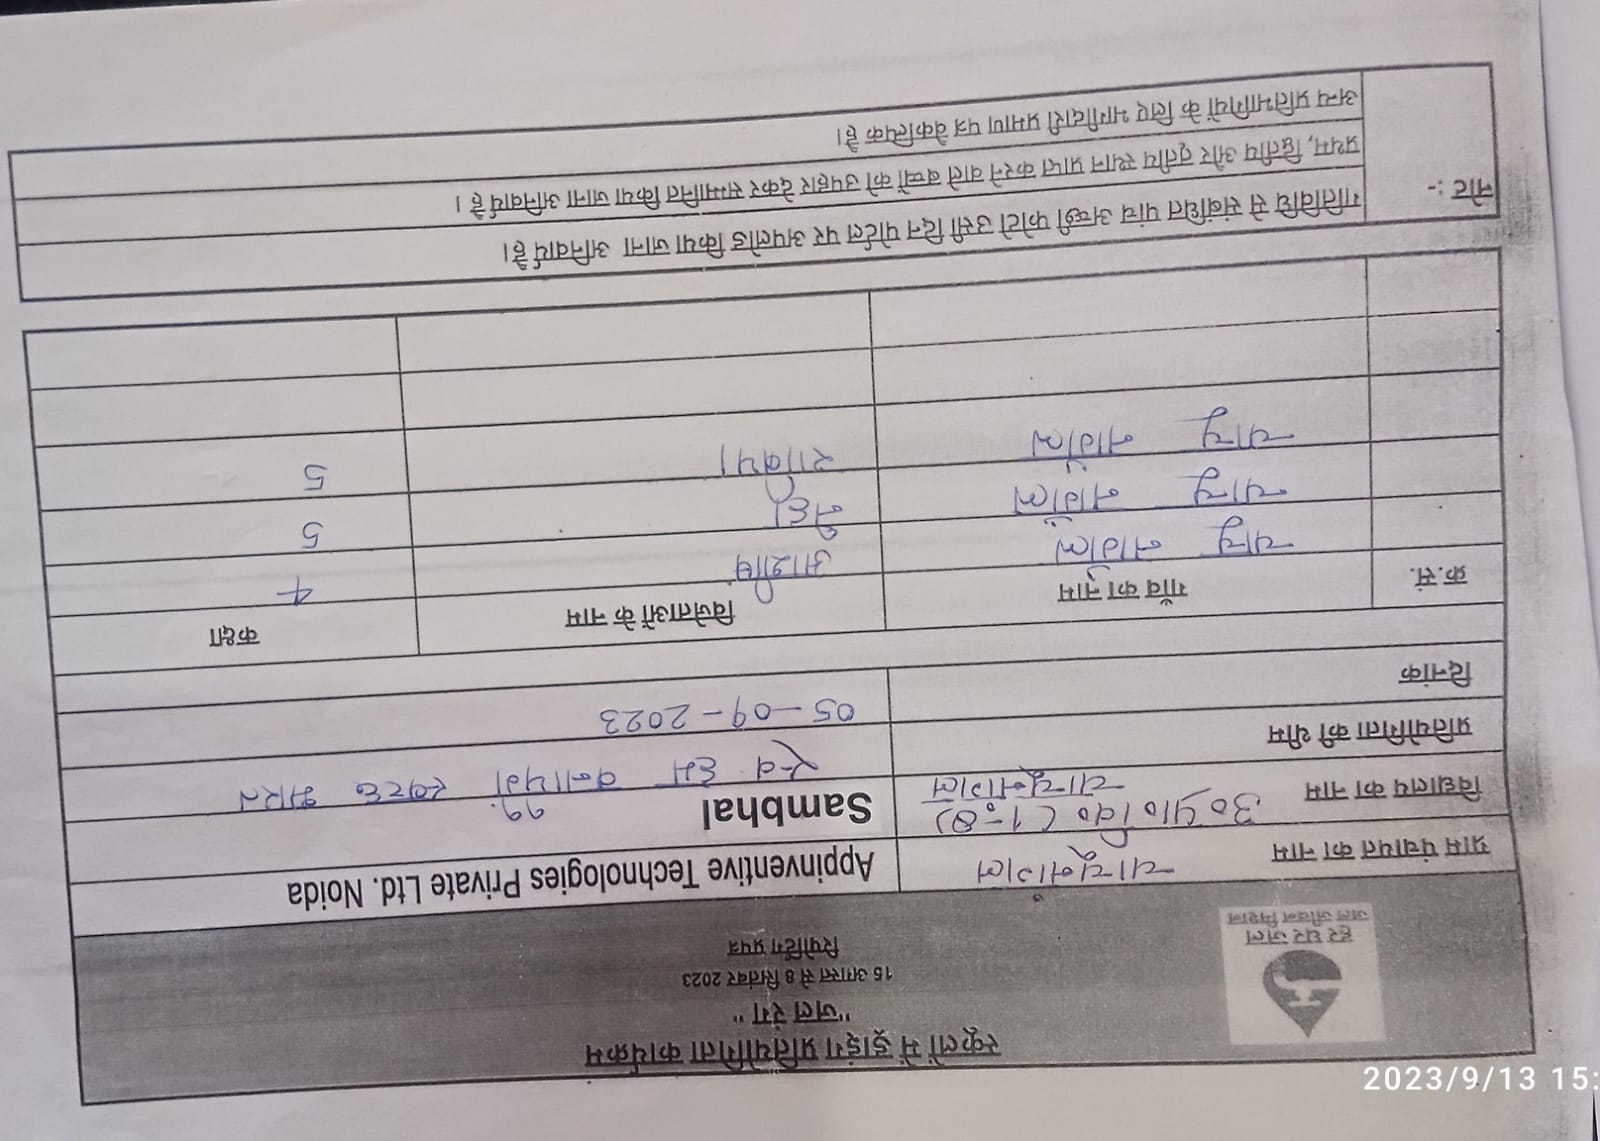 स्कूलों में ड्राइंग प्रतियोगिता कार्यक्रम
"जल रंग"
15 अगस्त से 8 सितंबर 2023
रिपोर्टिंग प्रपत्र
हर घर जल
जल जीवन मिशन
ग्राम पंचायत का नाम चाचूनांगल Appinventive Technologies Private Ltd. Noida
विद्यालय का नाम उ० प्रा० वि० (1-8) चाचूनांगल Sambhal
प्रतियोगिता की थीम हम बनायेंगे स्वच्छ भारत
दिनांक 05-09-2023
क्र.सं. गाँव का नाम विजेताओं के नाम कक्षा
चाचू नांगल 4
चाचू नांगल नेहा 5
चाचू नांगल 5
नोट :- गतिविधि से संबंधित पांच अच्छी फोटो उसी दिन पोर्टल पर अपलोड किया जाना अनिवार्य है।
प्रथम, द्वितीय और तृतीय स्थान प्राप्त करने वाले बच्चों को उपहार देकर सम्मानित किया जाना अनिवार्य है।
अन्य प्रतिभागियों के लिए भागीदारी प्रमाण पत्र वैकल्पिक है।
2023/9/13 15: